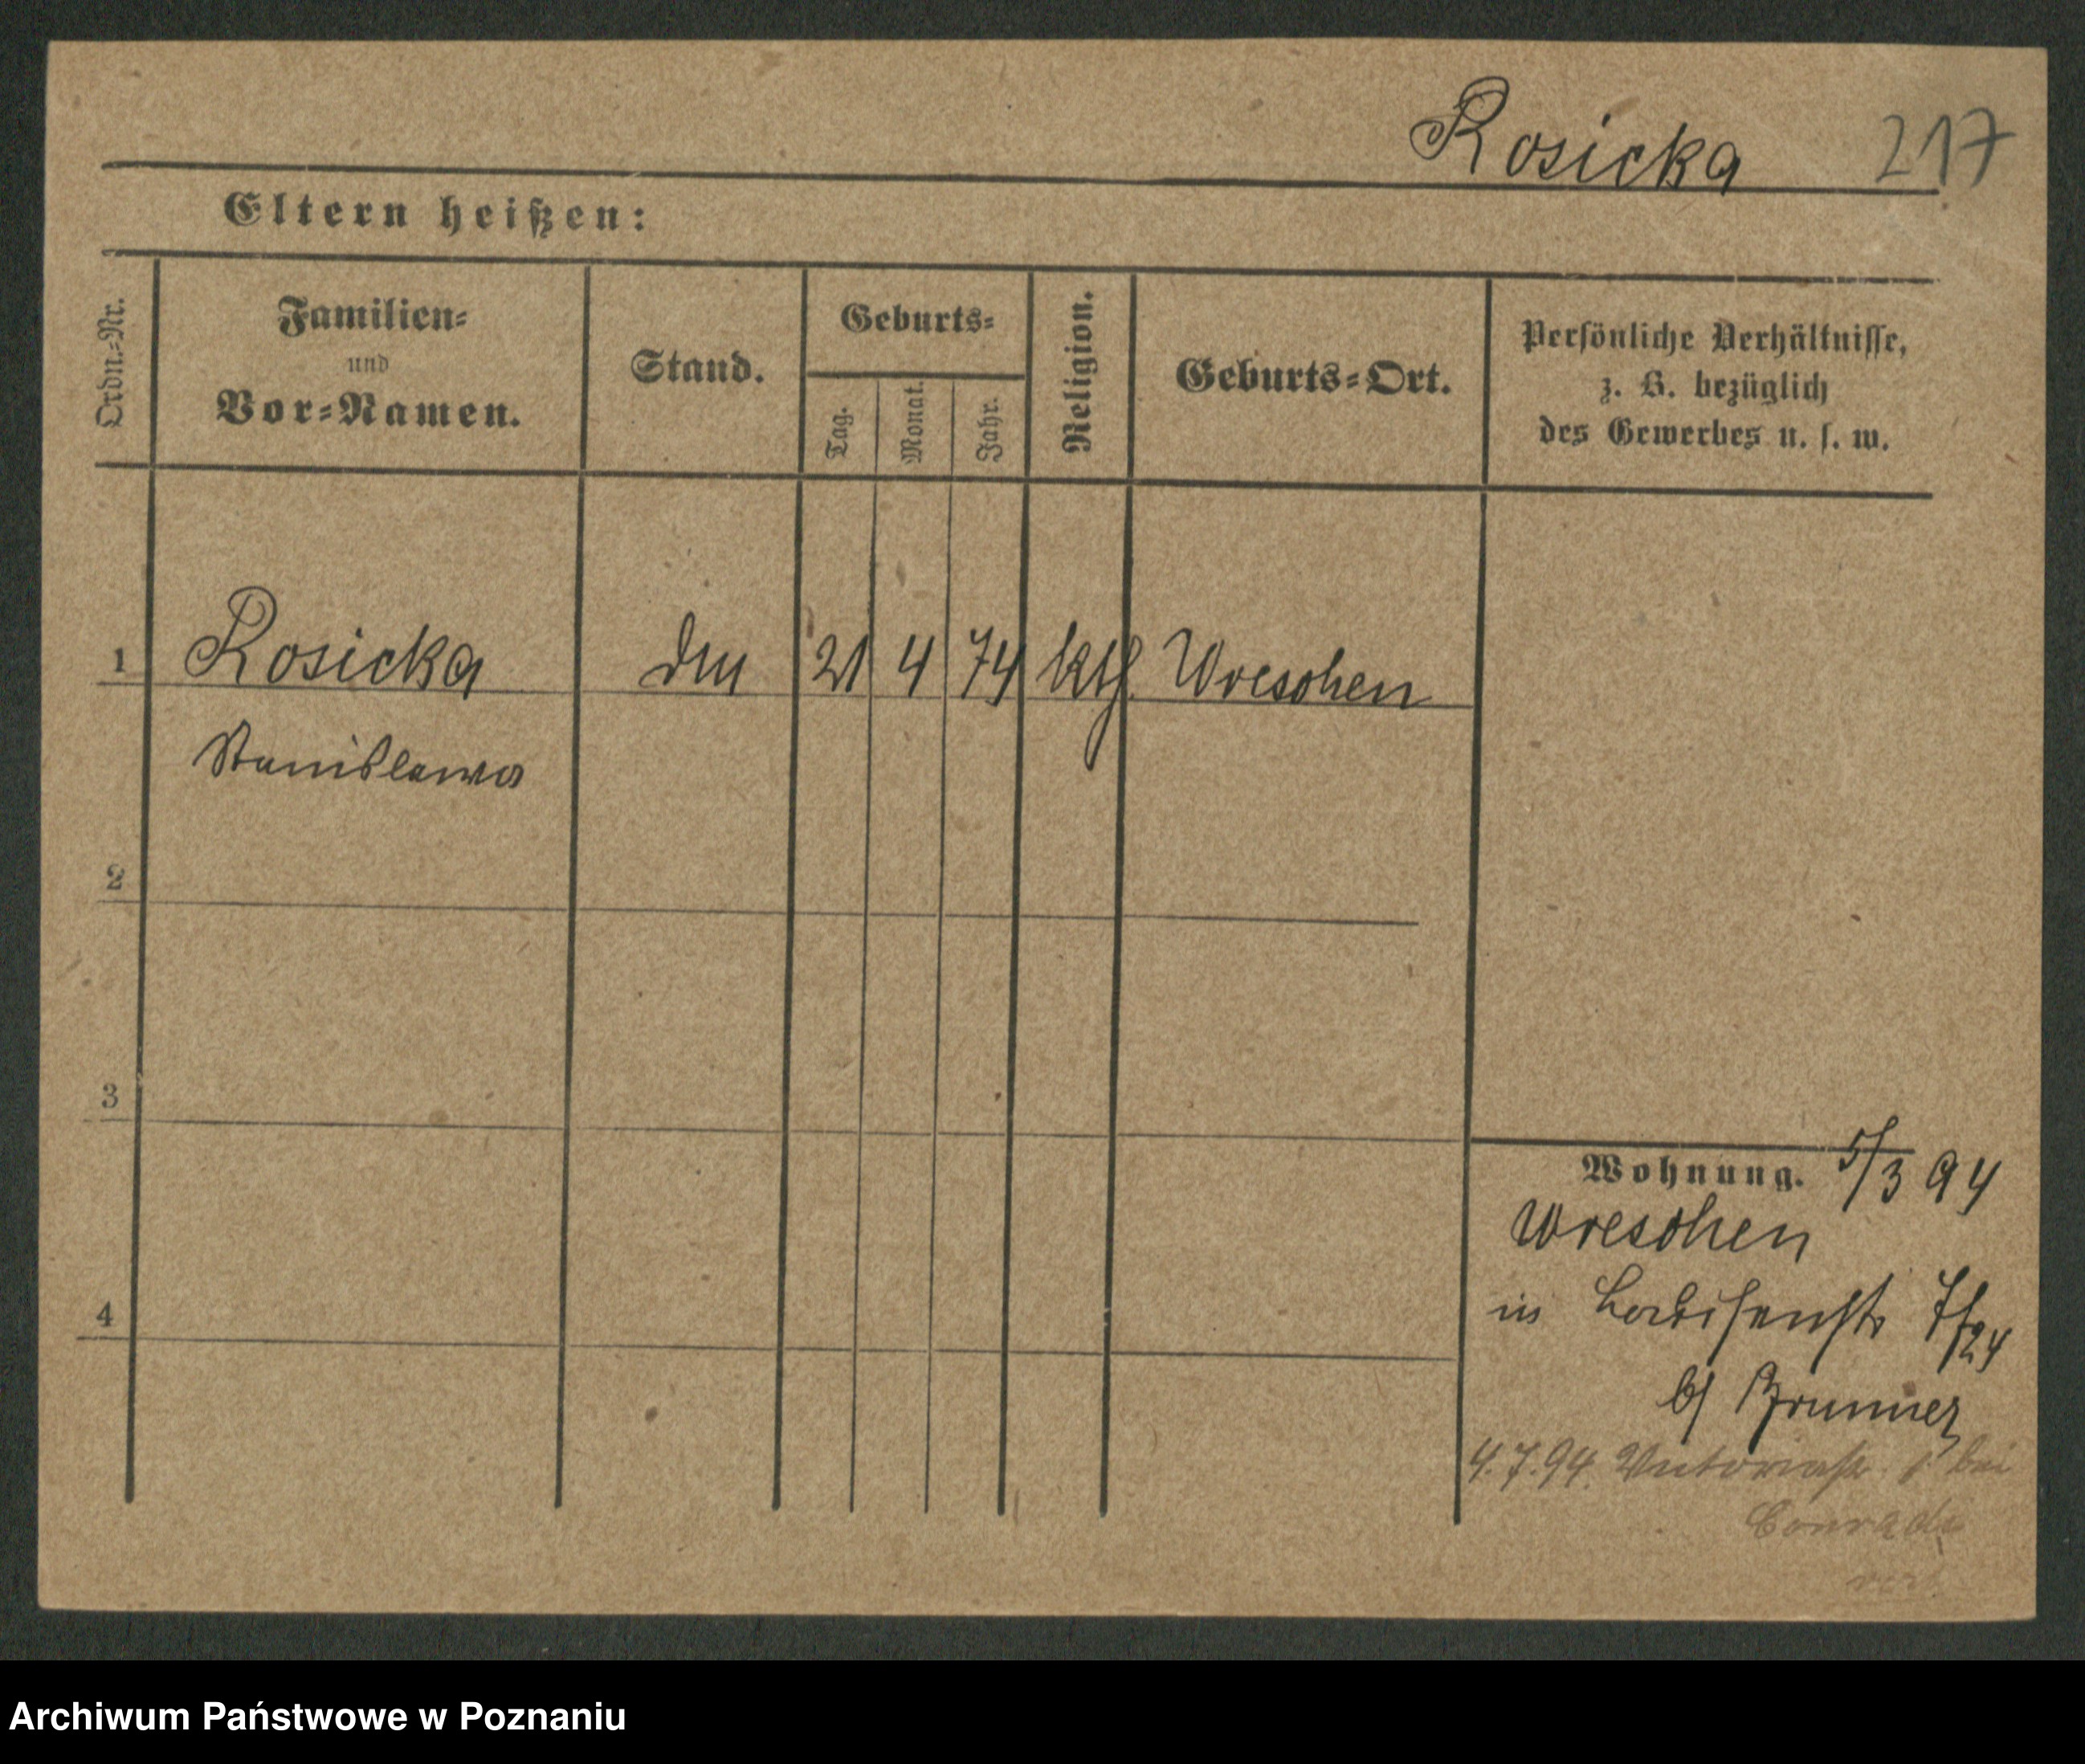 Rosicka 217
Eltern heißen:
Ordn.-Nr.
Familien-
und
Vor-Namen.
Stand.
Geburts-
Tag.
Monat.
Jahr.
Religion.
Geburts-Ort.
Persönliche Verhältnisse,
z. B. bezüglich
des Gewerbes u. s. w.
1 Rosicka 21 4 74 kth. Wreschen
Stanislawa
2
3
4
Wohnung. 5/3 94
Wreschen
in Louisenstr 7/24
b/ Brunner
4.7.94. Victoriastr. bei
Conrad
Archiwum Państwowe w Poznaniu